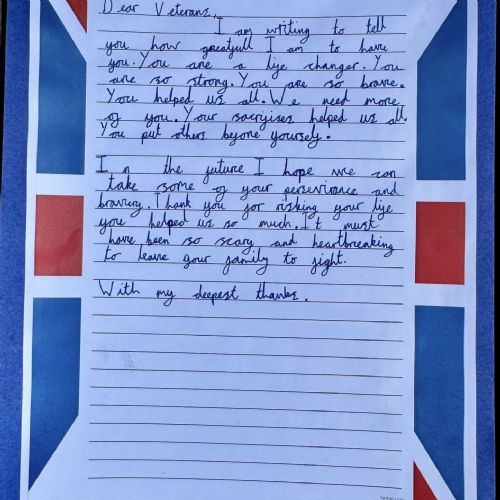 Dear Veterans,
I am writing to tell
you how greatfull I am to have
you. You are a life changer. You
are so strong. You are so brave.
You helped us all. We need more
of you. Your sacrifises helped us all.
You put others before yourself.
In the future I hope we can
take some of your persevirance and
bravery. Thank you for risking your life
you helped us so much. It must
have been so scary and heartbreaking
to leave your family to fight.
With my deepest thanks.